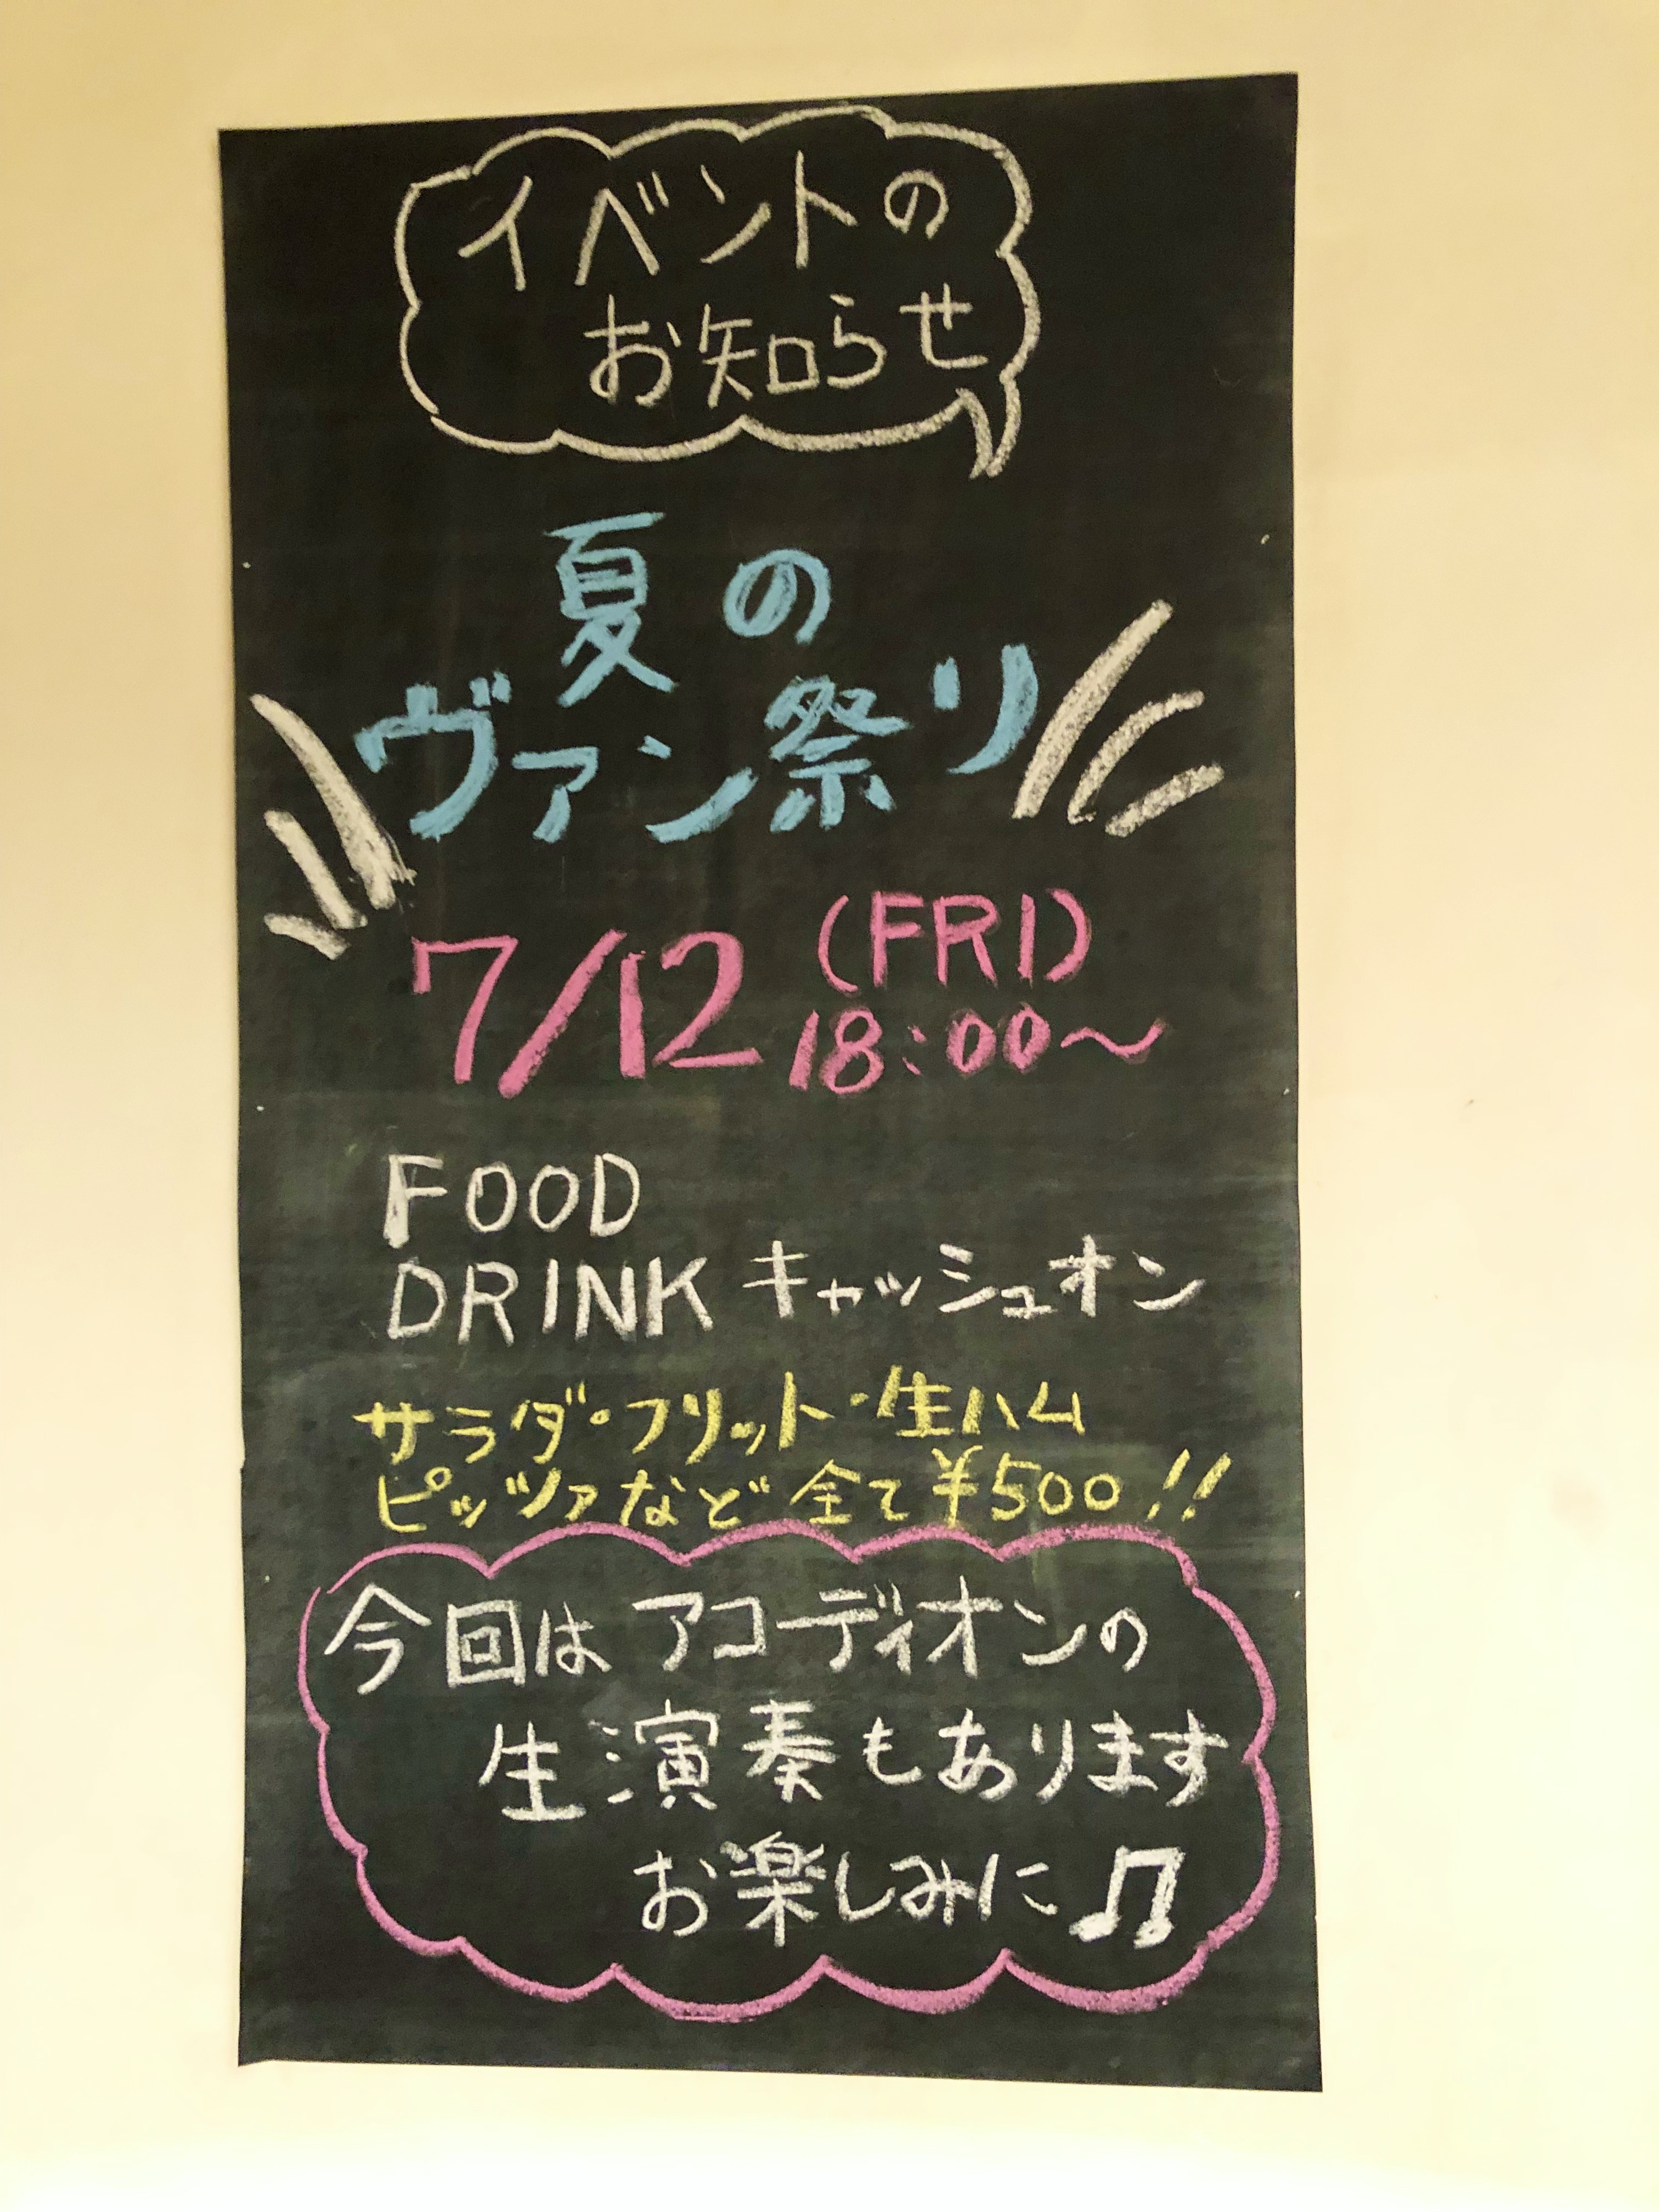 イベントの
お知らせ
夏の
ヴァン祭り
7/12 (FRI)
18:00〜
FOOD
DRINK キャッシュオン
サラダ・フリット・生ハム
ピッツァなど 全て ¥500!!
今回は アコーディオンの
生演奏もあります
お楽しみに ♫